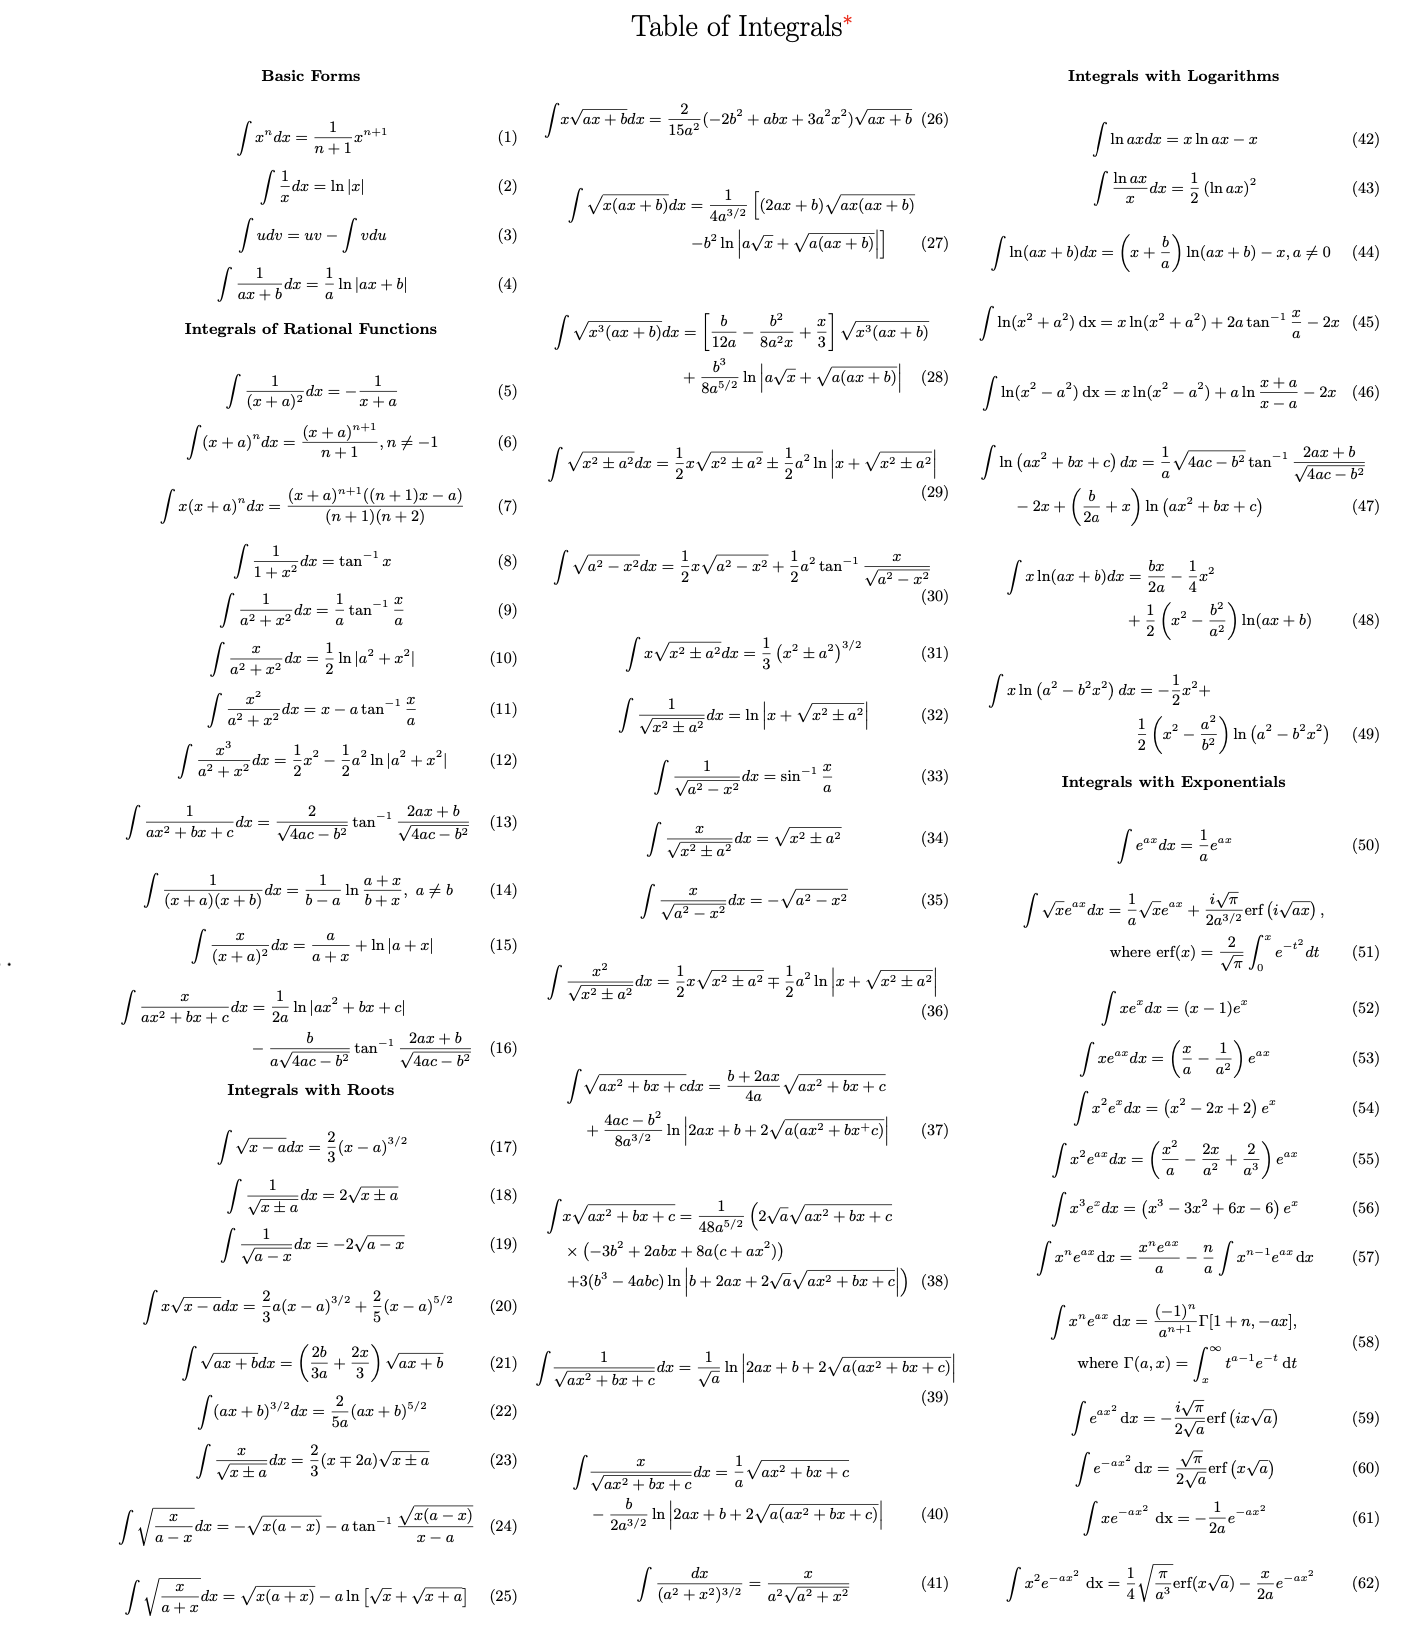 Table of Integrals*
Basic Forms
∫ xⁿdx = 1/(n + 1) xⁿ⁺¹ (1)
∫ 1/x dx = ln |x| (2)
∫ udv = uv − ∫ vdu (3)
∫ 1/(ax + b) dx = 1/a ln |ax + b| (4)
Integrals of Rational Functions
∫ 1/(x + a)² dx = −1/(x + a) (5)
∫ (x + a)ⁿdx = (x + a)ⁿ⁺¹/(n + 1), n ≠ −1 (6)
∫ x(x + a)ⁿdx = (x + a)ⁿ⁺¹((n + 1)x − a)/((n + 1)(n + 2)) (7)
∫ 1/(1 + x²) dx = tan⁻¹ x (8)
∫ 1/(a² + x²) dx = 1/a tan⁻¹ x/a (9)
∫ x/(a² + x²) dx = 1/2 ln |a² + x²| (10)
∫ x²/(a² + x²) dx = x − a tan⁻¹ x/a (11)
∫ x³/(a² + x²) dx = 1/2 x² − 1/2 a² ln |a² + x²| (12)
∫ 1/(ax² + bx + c) dx = 2/√(4ac − b²) tan⁻¹ (2ax + b)/√(4ac − b²) (13)
∫ 1/((x + a)(x + b)) dx = 1/(b − a) ln (a + x)/(b + x), a ≠ b (14)
∫ x/(x + a)² dx = a/(a + x) + ln |a + x| (15)
∫ x/(ax² + bx + c) dx = 1/(2a) ln |ax² + bx + c|
− b/(a√(4ac − b²)) tan⁻¹ (2ax + b)/√(4ac − b²) (16)
Integrals with Roots
∫ √(x − a)dx = 2/3 (x − a)^(3/2) (17)
∫ 1/√(x ± a) dx = 2√(x ± a) (18)
∫ 1/√(a − x) dx = −2√(a − x) (19)
∫ x√(x − a)dx = 2/3 a(x − a)^(3/2) + 2/5 (x − a)^(5/2) (20)
∫ √(ax + b)dx = (2b/3a + 2x/3) √(ax + b) (21)
∫ (ax + b)^(3/2)dx = 2/(5a) (ax + b)^(5/2) (22)
∫ x/√(x ± a) dx = 2/3 (x ∓ 2a)√(x ± a) (23)
∫ √(x/(a − x)) dx = −√(x(a − x)) − a tan⁻¹ √(x(a − x))/(x − a) (24)
∫ √(x/(a + x)) dx = √(x(a + x)) − a ln [√x + √(x + a)] (25)
∫ x√(ax + b)dx = 2/(15a²) (−2b² + abx + 3a²x²)√(ax + b) (26)
∫ √(x(ax + b))dx = 1/(4a^(3/2)) [(2ax + b)√(ax(ax + b))
−b² ln |a√x + √(a(ax + b))|] (27)
∫ √(x³(ax + b))dx = [b/(12a) − b²/(8a²x) + x/3] √(x³(ax + b))
+ b³/(8a^(5/2)) ln |a√x + √(a(ax + b))| (28)
∫ √(x² ± a²)dx = 1/2 x√(x² ± a²) ± 1/2 a² ln |x + √(x² ± a²)|
(29)
∫ √(a² − x²)dx = 1/2 x√(a² − x²) + 1/2 a² tan⁻¹ x/√(a² − x²)
(30)
∫ x√(x² ± a²)dx = 1/3 (x² ± a²)^(3/2) (31)
∫ 1/√(x² ± a²) dx = ln |x + √(x² ± a²)| (32)
∫ 1/√(a² − x²) dx = sin⁻¹ x/a (33)
∫ x/√(x² ± a²) dx = √(x² ± a²) (34)
∫ x/√(a² − x²) dx = −√(a² − x²) (35)
∫ x²/√(x² ± a²) dx = 1/2 x√(x² ± a²) ∓ 1/2 a² ln |x + √(x² ± a²)|
(36)
∫ √(ax² + bx + c)dx = (b + 2ax)/(4a) √(ax² + bx + c)
+ (4ac − b²)/(8a^(3/2)) ln |2ax + b + 2√(a(ax² + bx⁺c))| (37)
∫ x√(ax² + bx + c) = 1/(48a^(5/2)) (2√a√(ax² + bx + c)
× (−3b² + 2abx + 8a(c + ax²))
+3(b³ − 4abc) ln |b + 2ax + 2√a√(ax² + bx + c)|) (38)
∫ 1/√(ax² + bx + c) dx = 1/√a ln |2ax + b + 2√(a(ax² + bx + c))|
(39)
∫ x/√(ax² + bx + c) dx = 1/a √(ax² + bx + c)
− b/(2a^(3/2)) ln |2ax + b + 2√(a(ax² + bx + c))| (40)
∫ dx/(a² + x²)^(3/2) = x/(a²√(a² + x²)) (41)
Integrals with Logarithms
∫ ln axdx = x ln ax − x (42)
∫ ln ax/x dx = 1/2 (ln ax)² (43)
∫ ln(ax + b)dx = (x + b/a) ln(ax + b) − x, a ≠ 0 (44)
∫ ln(x² + a²) dx = x ln(x² + a²) + 2a tan⁻¹ x/a − 2x (45)
∫ ln(x² − a²) dx = x ln(x² − a²) + a ln (x + a)/(x − a) − 2x (46)
∫ ln (ax² + bx + c) dx = 1/a √(4ac − b²) tan⁻¹ (2ax + b)/√(4ac − b²)
− 2x + (b/2a + x) ln (ax² + bx + c) (47)
∫ x ln(ax + b)dx = bx/2a − 1/4 x²
+ 1/2 (x² − b²/a²) ln(ax + b) (48)
∫ x ln (a² − b²x²) dx = −1/2 x²+
1/2 (x² − a²/b²) ln (a² − b²x²) (49)
Integrals with Exponentials
∫ e^(ax)dx = 1/a e^(ax) (50)
∫ √x e^(ax)dx = 1/a √x e^(ax) + i√π/(2a^(3/2)) erf (i√(ax)),
where erf(x) = 2/√π ∫₀ˣ e^(−t²)dt (51)
∫ xeˣdx = (x − 1)eˣ (52)
∫ xe^(ax)dx = (x/a − 1/a²) e^(ax) (53)
∫ x²eˣdx = (x² − 2x + 2) eˣ (54)
∫ x²e^(ax)dx = (x²/a − 2x/a² + 2/a³) e^(ax) (55)
∫ x³eˣdx = (x³ − 3x² + 6x − 6) eˣ (56)
∫ xⁿe^(ax) dx = xⁿe^(ax)/a − n/a ∫ xⁿ⁻¹e^(ax) dx (57)
∫ xⁿe^(ax) dx = (−1)ⁿ/aⁿ⁺¹ Γ[1 + n, −ax],
where Γ(a, x) = ∫ₓ^∞ t^(a−1)e^(−t) dt (58)
∫ e^(ax²) dx = −i√π/(2√a) erf (ix√a) (59)
∫ e^(−ax²) dx = √π/(2√a) erf (x√a) (60)
∫ xe^(−ax²) dx = −1/(2a) e^(−ax²) (61)
∫ x²e^(−ax²) dx = 1/4 √(π/a³) erf(x√a) − x/(2a) e^(−ax²) (62)